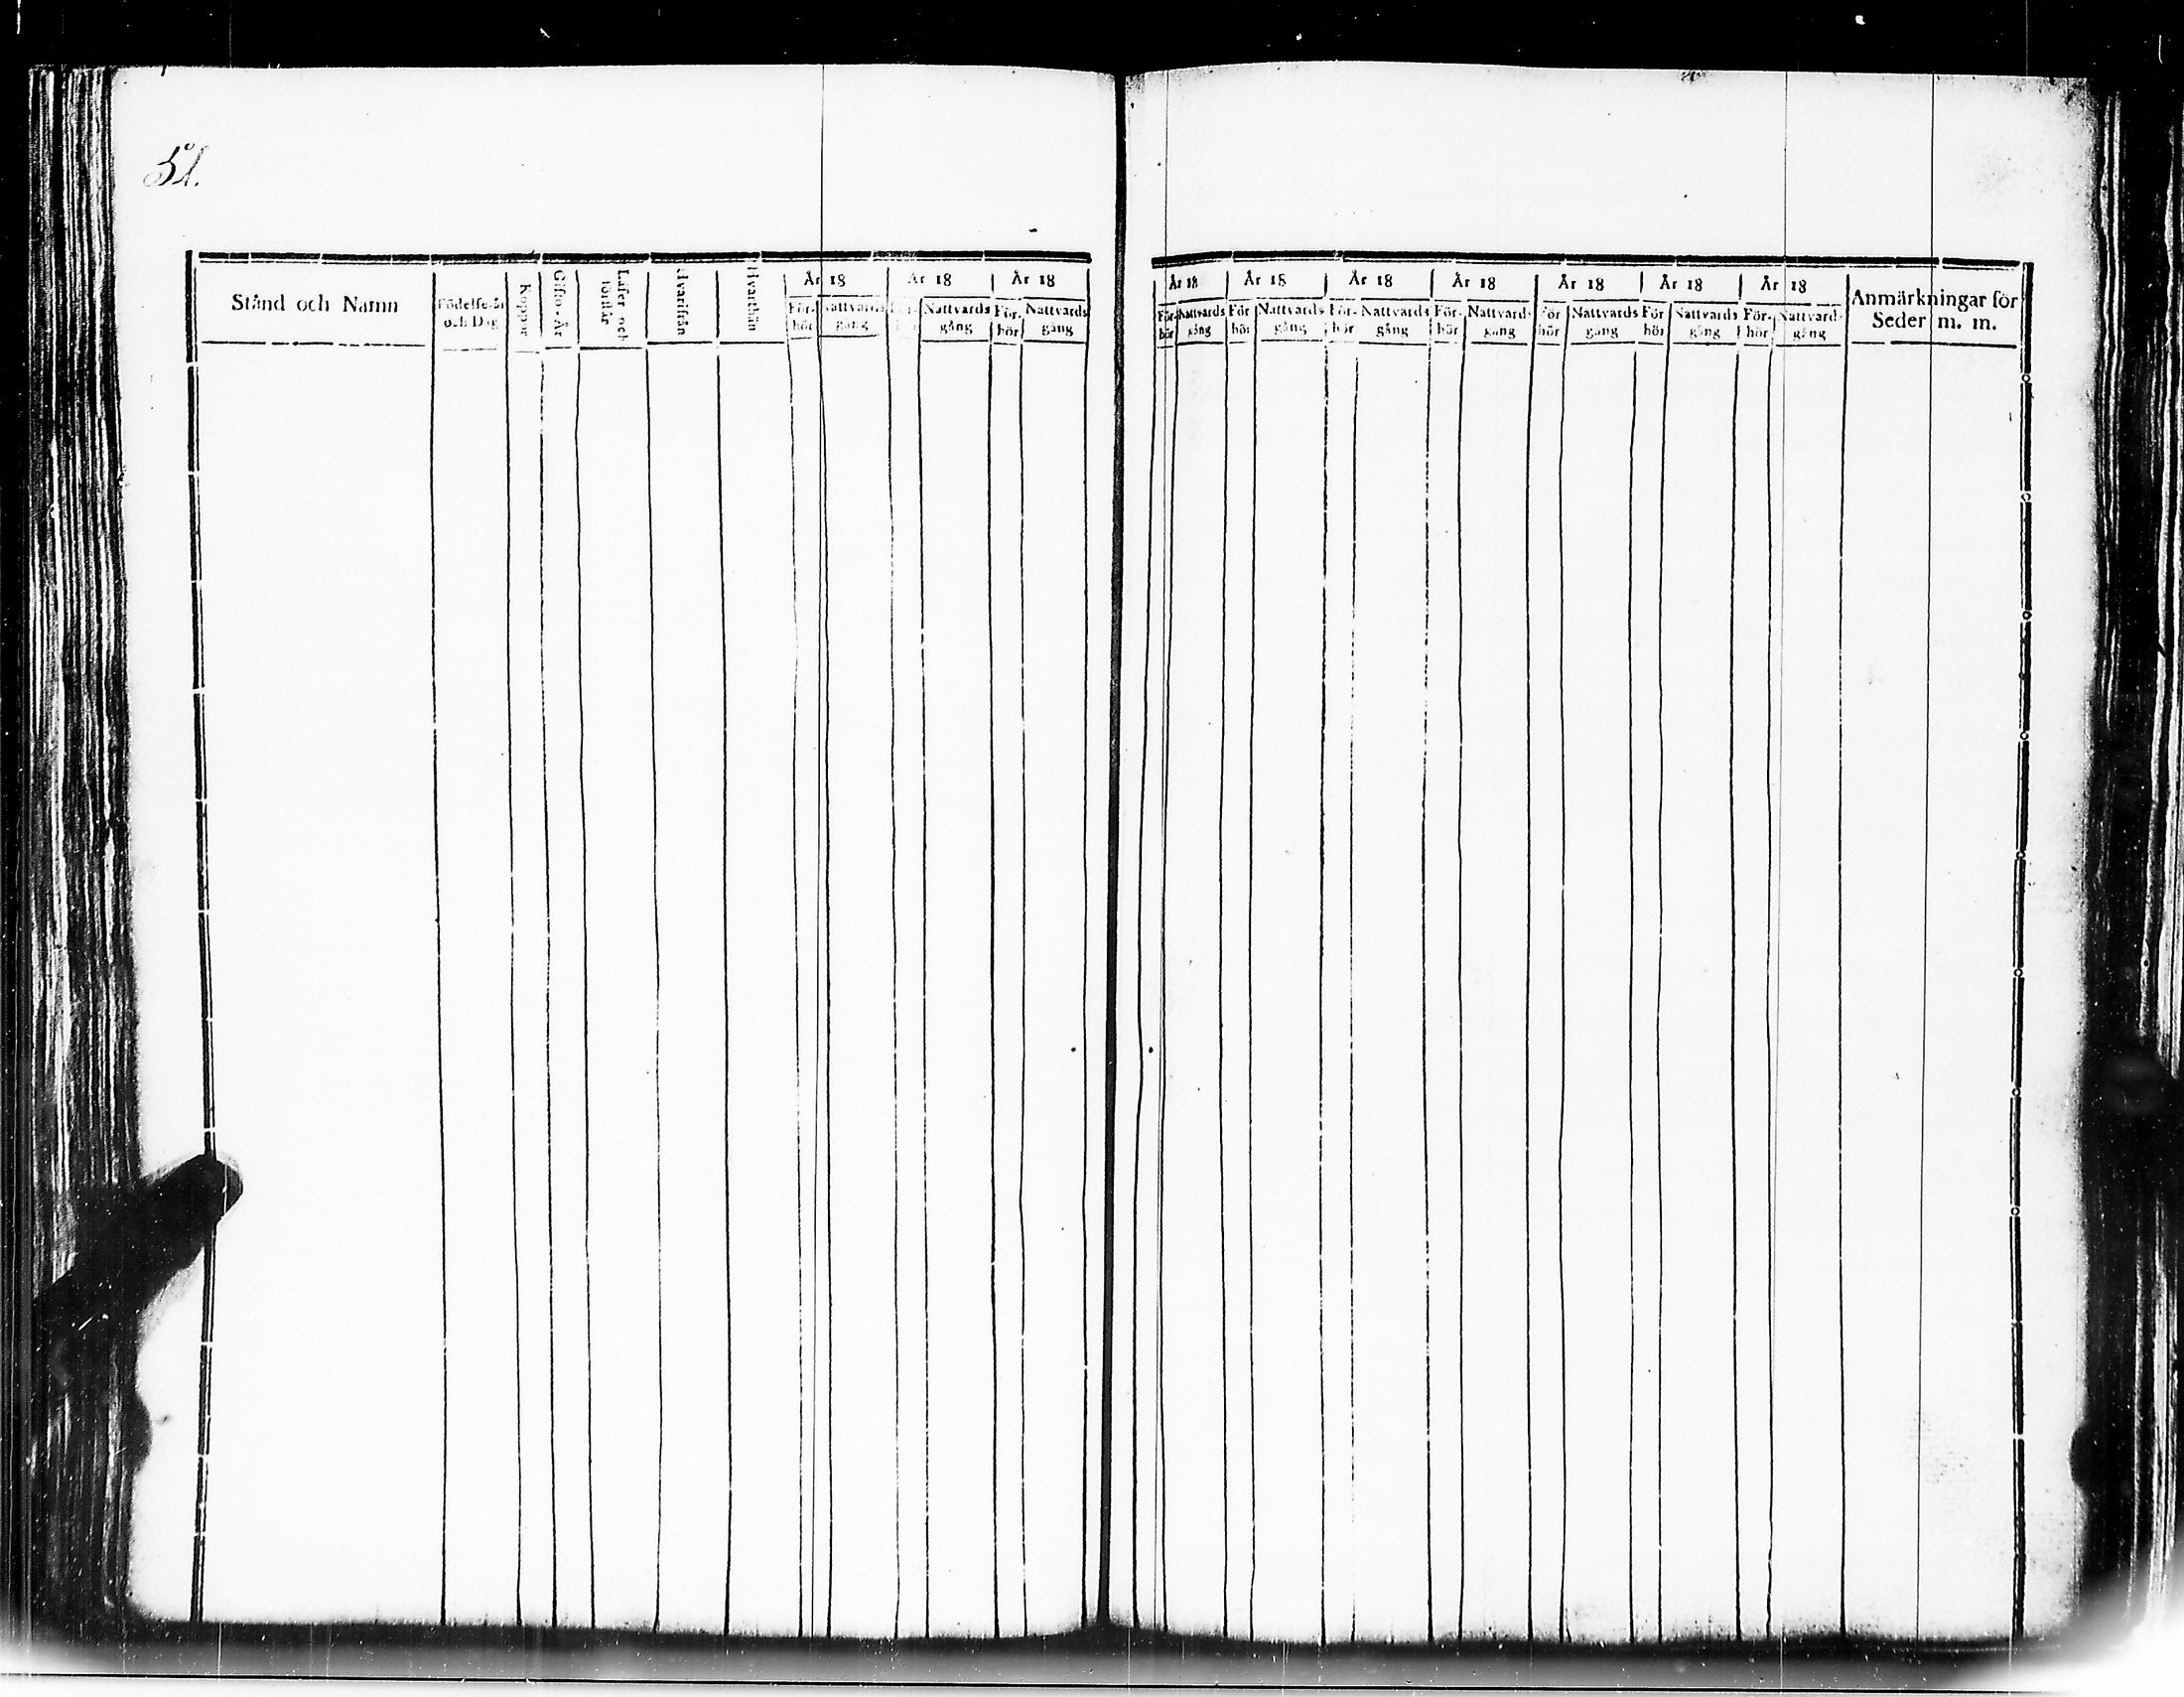 51.
Stånd och Namn
Födelse-år och Dag
Koppor
Gifto-År
Läser och förstår
Hvarifrån
Hvarthän
År 18
För-hör
Nattvards gång
År 18
För-hör
Nattvards gång
År 18
För-hör
Nattvards gång
År 18
För-hör
Nattvards gång
År 18
För hör
Nattvards gång
År 18
För-hör
Nattvards gång
År 18
För-hör
Nattvards gång
År 18
För hör
Nattvards gång
År 18
För hör
Nattvards gång
År 18
För-hör
Nattvards gång
Anmärkningar för
Seder m. m.